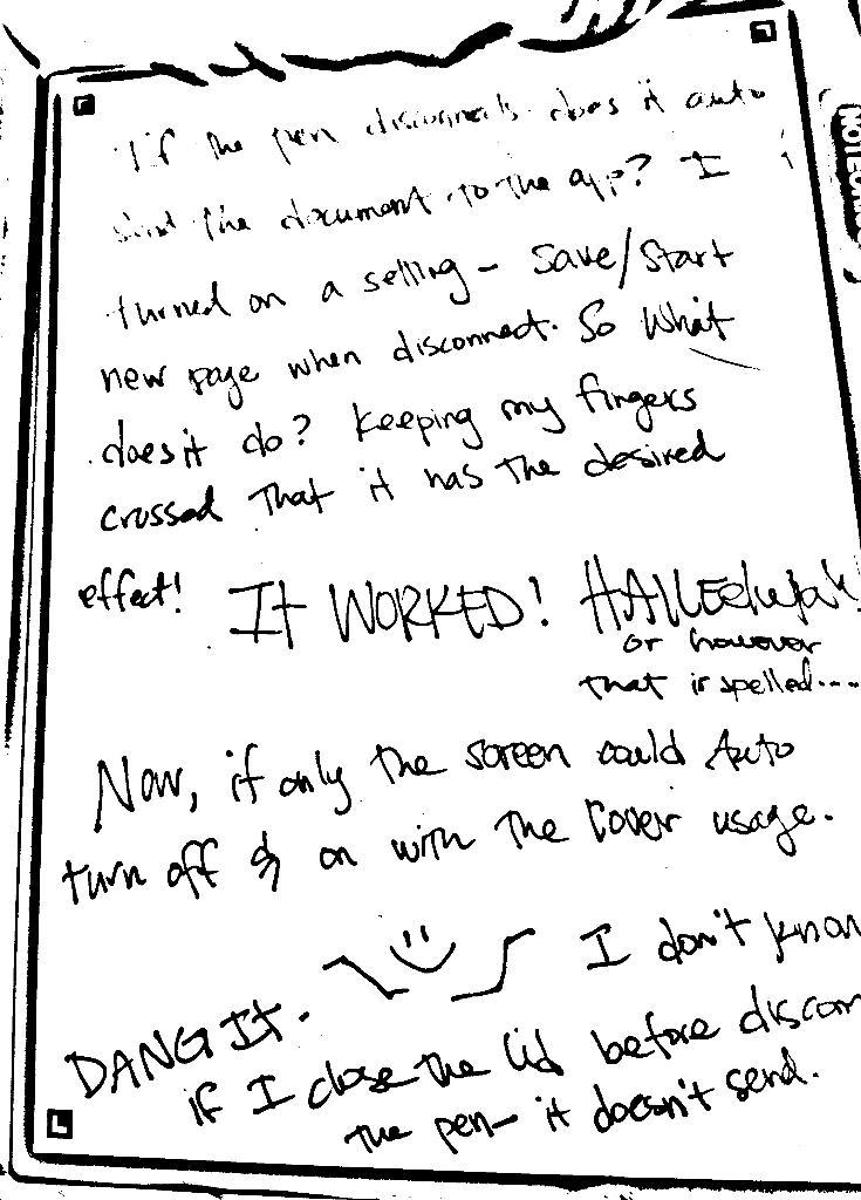 If the pen disconnects does it auto
send the document to the app? I
turned on a setting - save/start
new page when disconnect. So What
does it do? Keeping my fingers
crossed that it has the desired
effect! It WORKED! HALLEelujah!
or however
that is spelled....
Now, if only the screen could Auto
turn off & on with the cover usage.
I don't know
DANG It.
if I close the lid before disconn
the pen - it doesn't send.